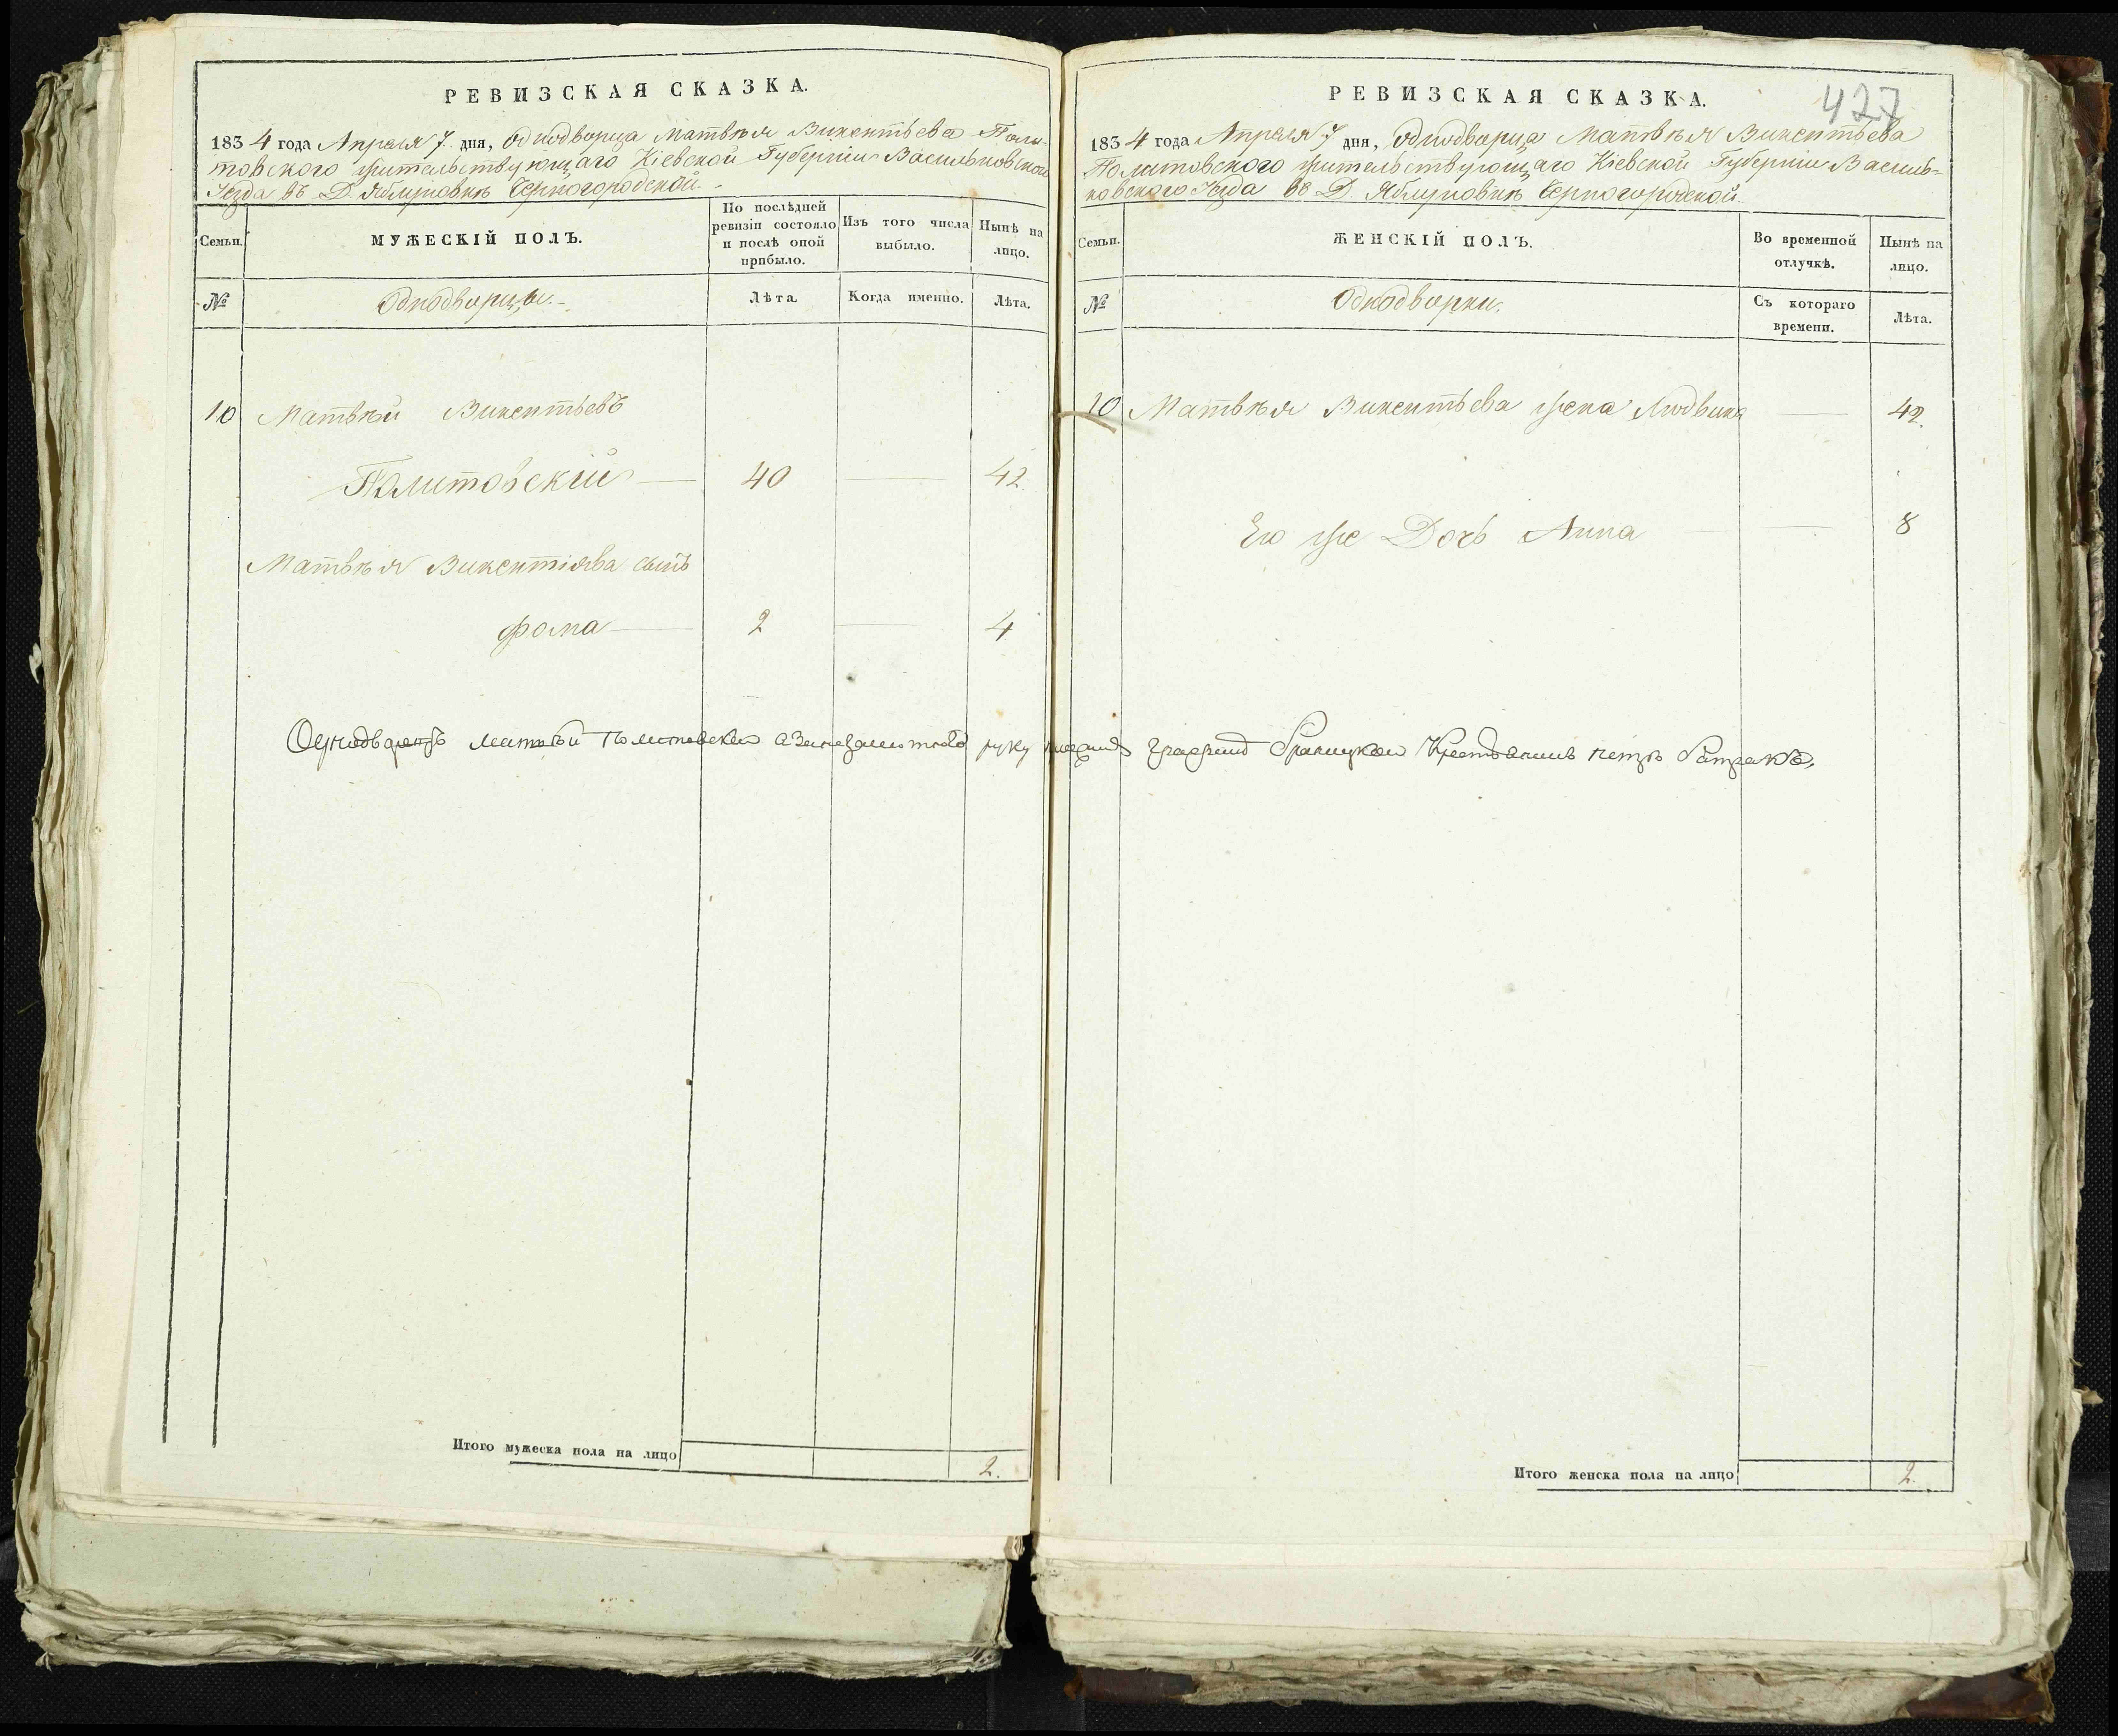 РЕВИЗСКАЯ СКАЗКА.
1834 года Апреля 7 дня, Однодворца Матвѣя Викентьева Поли-
товского жительствующаго Кіевской Губерніи Васильковского
Уезда въ Д. Яблуновкѣ Черногородской.
Семьи.
МУЖЕСКІЙ ПОЛЪ.
По послѣдней ревизіи состояло и послѣ оной прибыло.
Изъ того числа выбыло.
Нынѣ на лицо.
№
Однодворцы.
Лѣта
Когда именно.
Лѣта.
10 Матвѣй Викентьевъ
Политовскій — 40 — 42.
Матвѣя Викентіява сынъ
Фома — 2 — 4
Однодворецъ Матвѣй Политовски а занеграмотного руку
Итого мужеска пола на лицо 2.
427
РЕВИЗСКАЯ СКАЗКА.
1834 года Апреля 7 дня, Однодворца Матвѣя Викентьева
Политовского жительствующаго Кіевской Губерніи Василь-
ковского Уѣзда въ Д. Яблуновкѣ Черногородской.
Семьи.
ЖЕНСКІЙ ПОЛЪ.
Во временной отлучкѣ.
Нынѣ на лицо.
№
Однодворки.
Съ котораго времени.
Лѣта.
10 Матвѣя Викентьева жена Людвика — 42.
Его же Дочь Анна — 8
Браницкой Крестьянинъ Петръ
Итого женска пола на лицо 2.